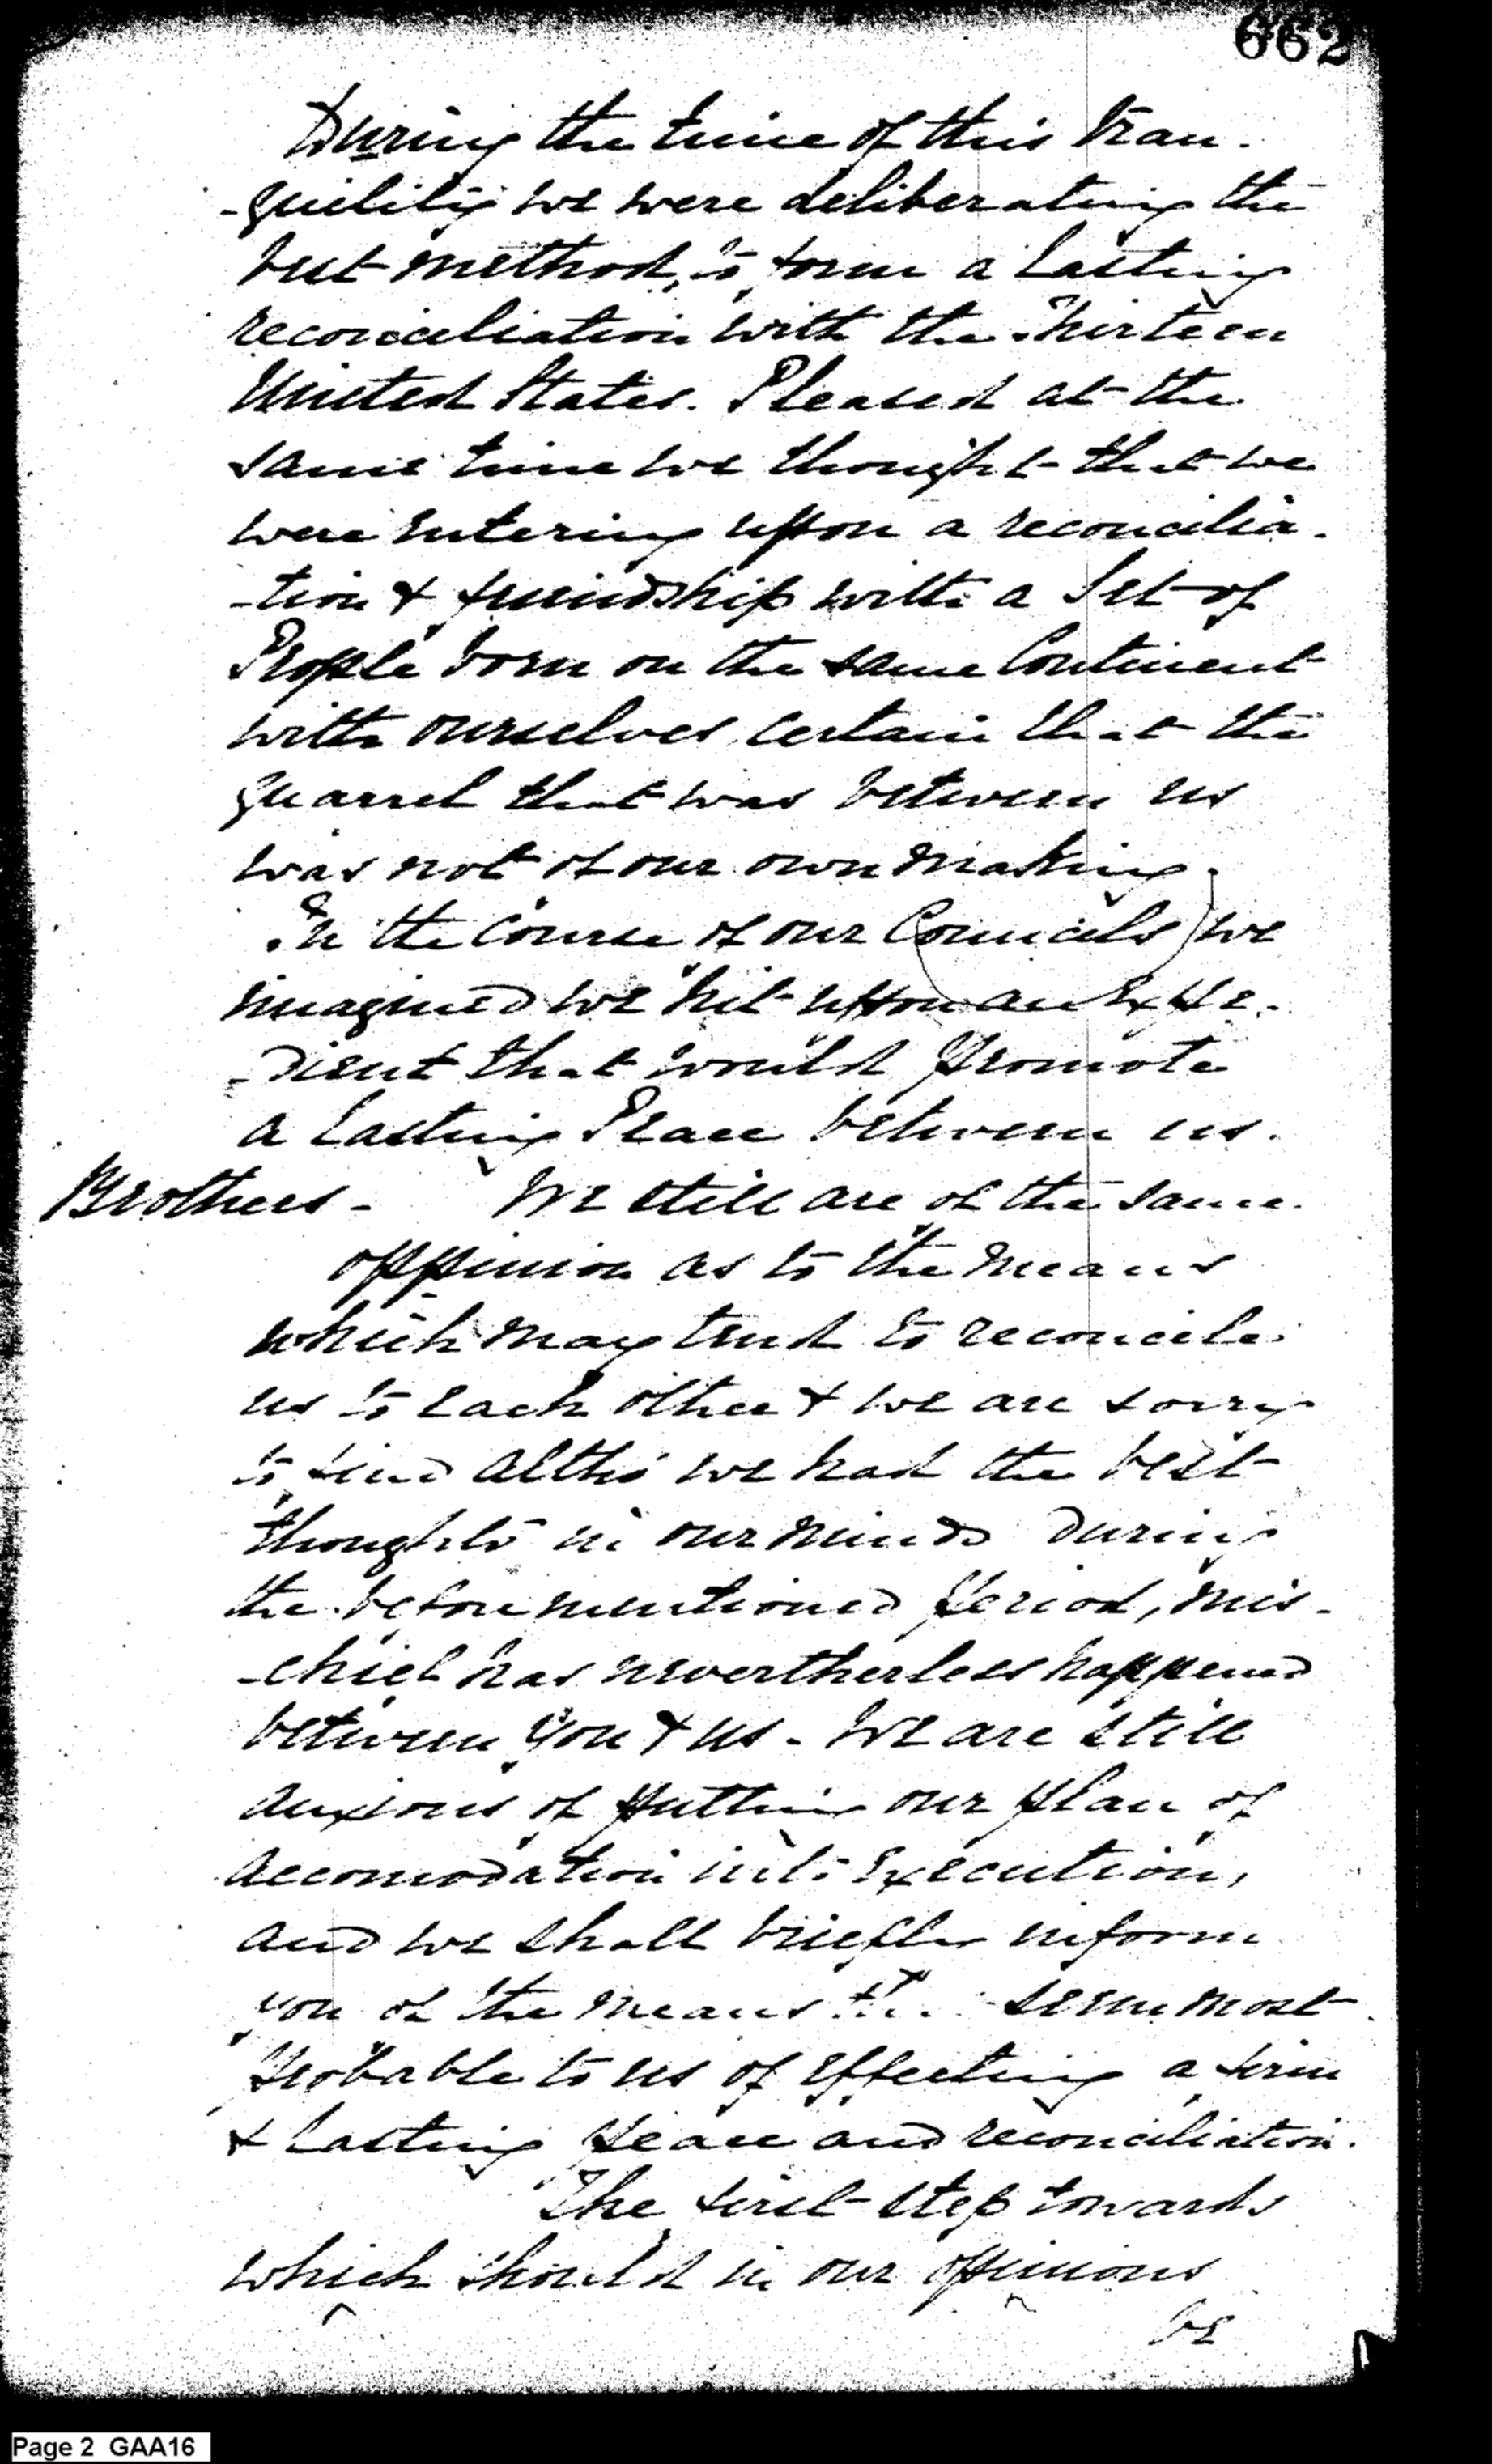 662
During the time of this Tran-
-quility we were deliberating the
best method, to form a Lasting
reconciliation with the Thirteen
United States. Pleased at the
same time we thought that we
were entering upon a reconcilia-
-tion & friendship with a Set of
People born on the same Continent
with ourselves, certain that the
quarrel that was between us
was not of our own making.
In the Course of our Councils we
imagined we hit upon an Expe-
-dient that would promote
a Lasting Peace between us.
Brothers - We still are of the same
oppinion as to the means
which may tend to reconcile
us to each other & we are sorry
to find altho' we had the best
thoughts in our minds during
the before mentioned period, mis-
-chief has nevertherless happened
between you & us - We are still
anxious of putting our plan of
accomodation into Execution,
and we shall briefly inform
you of the means seem most
probable to us of effecting a firm
& Lasting peace and reconciliation.
The first step towards
which should in our opinions
be
Page 2 GAA16